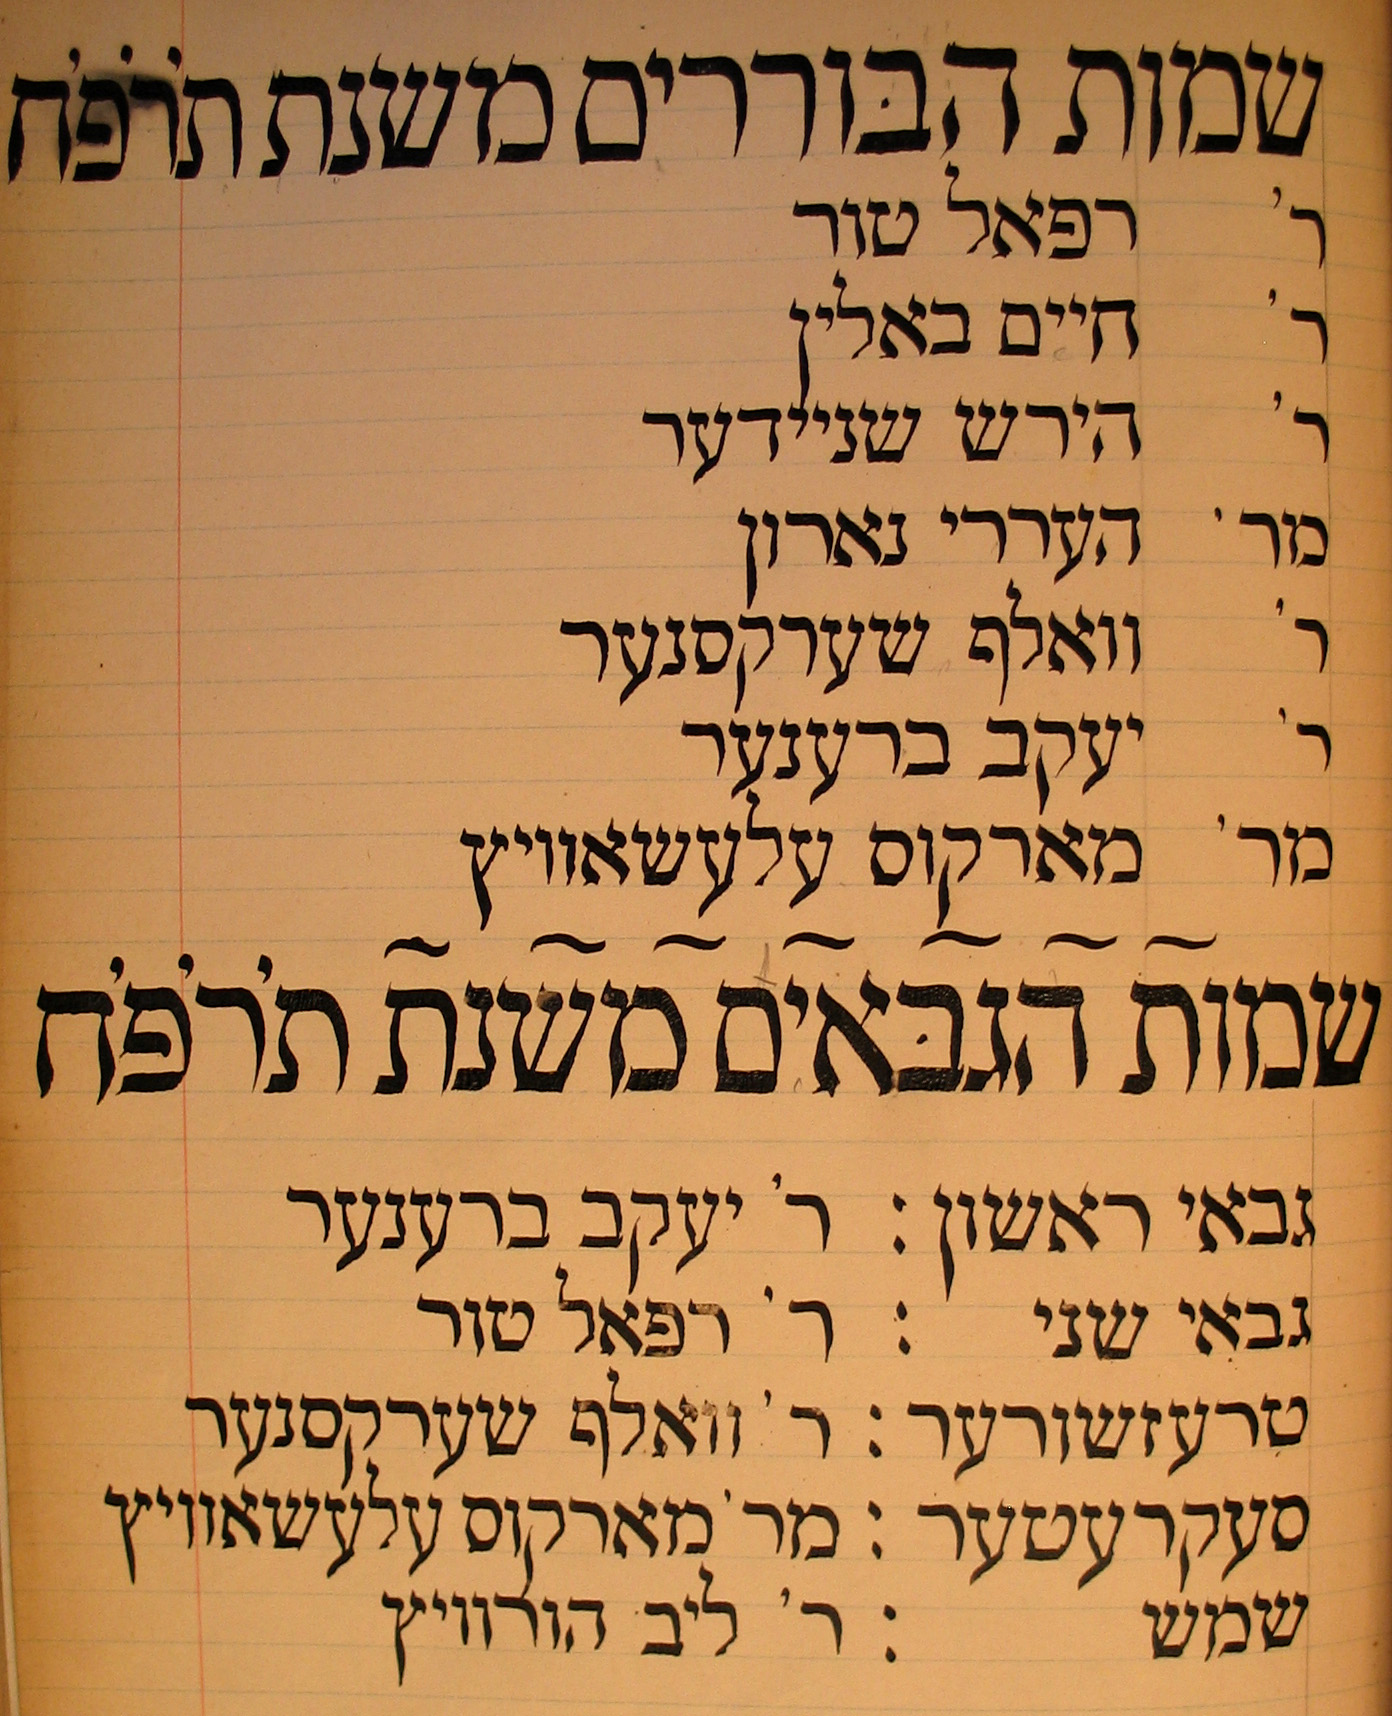 שמות הבוררים משנת תׄרׄפׄח
ר' רפאל טור
ר' חיים באלין
ר' הירש שניידער
מר' העררי נארון
ר' וואלף שערקסנער
ר' יעקב ברענער
מר' מארקוס עלעשאוויץ
שמות הגבאים משנת תׄרׄפׄח
גבאי ראשון : ר' יעקב ברענער
גבאי שני : ר' רפאל טור
טרעזשורער : ר' וואלף שערקסנער
סעקרעטער : מר' מארקוס עלעשאוויץ
שמש : ר' ליב הורוויץ